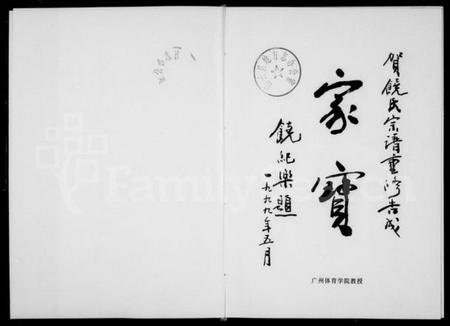 贺饶氏宗谱重修告成
家寳
饶纪乐题
一九九九年五月
广州体育学院教授
FamilySearch